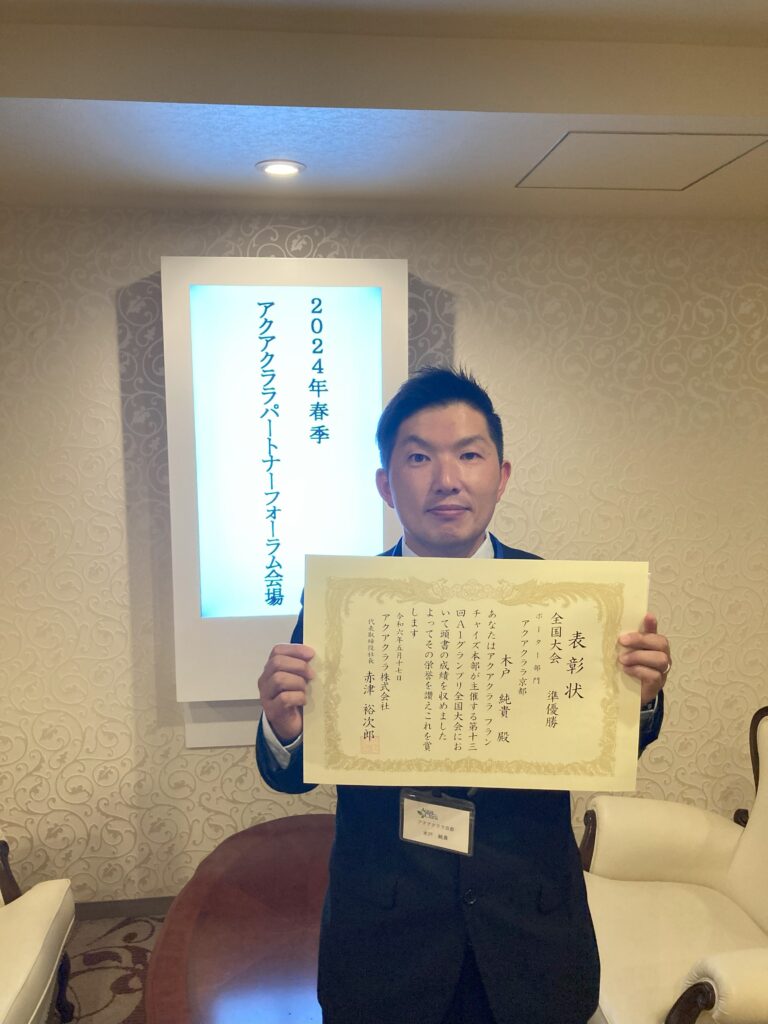 2024年春季
アクアクララパートナーフォーラム会場
表彰状
全国大会 準優勝
ポーター部門
アクアクララ京都
木戸 純貴 殿
あなたはアクアクララ フラン
チャイズ本部が主催する第十三
回A1グランプリ全国大会にお
いて頭書の成績を収めました
よってその栄誉を讃えこれを賞
します
令和六年五月十七日
アクアクララ株式会社
代表取締役社長 赤津 裕次郎
アクアクララ京都
木戸 純貴